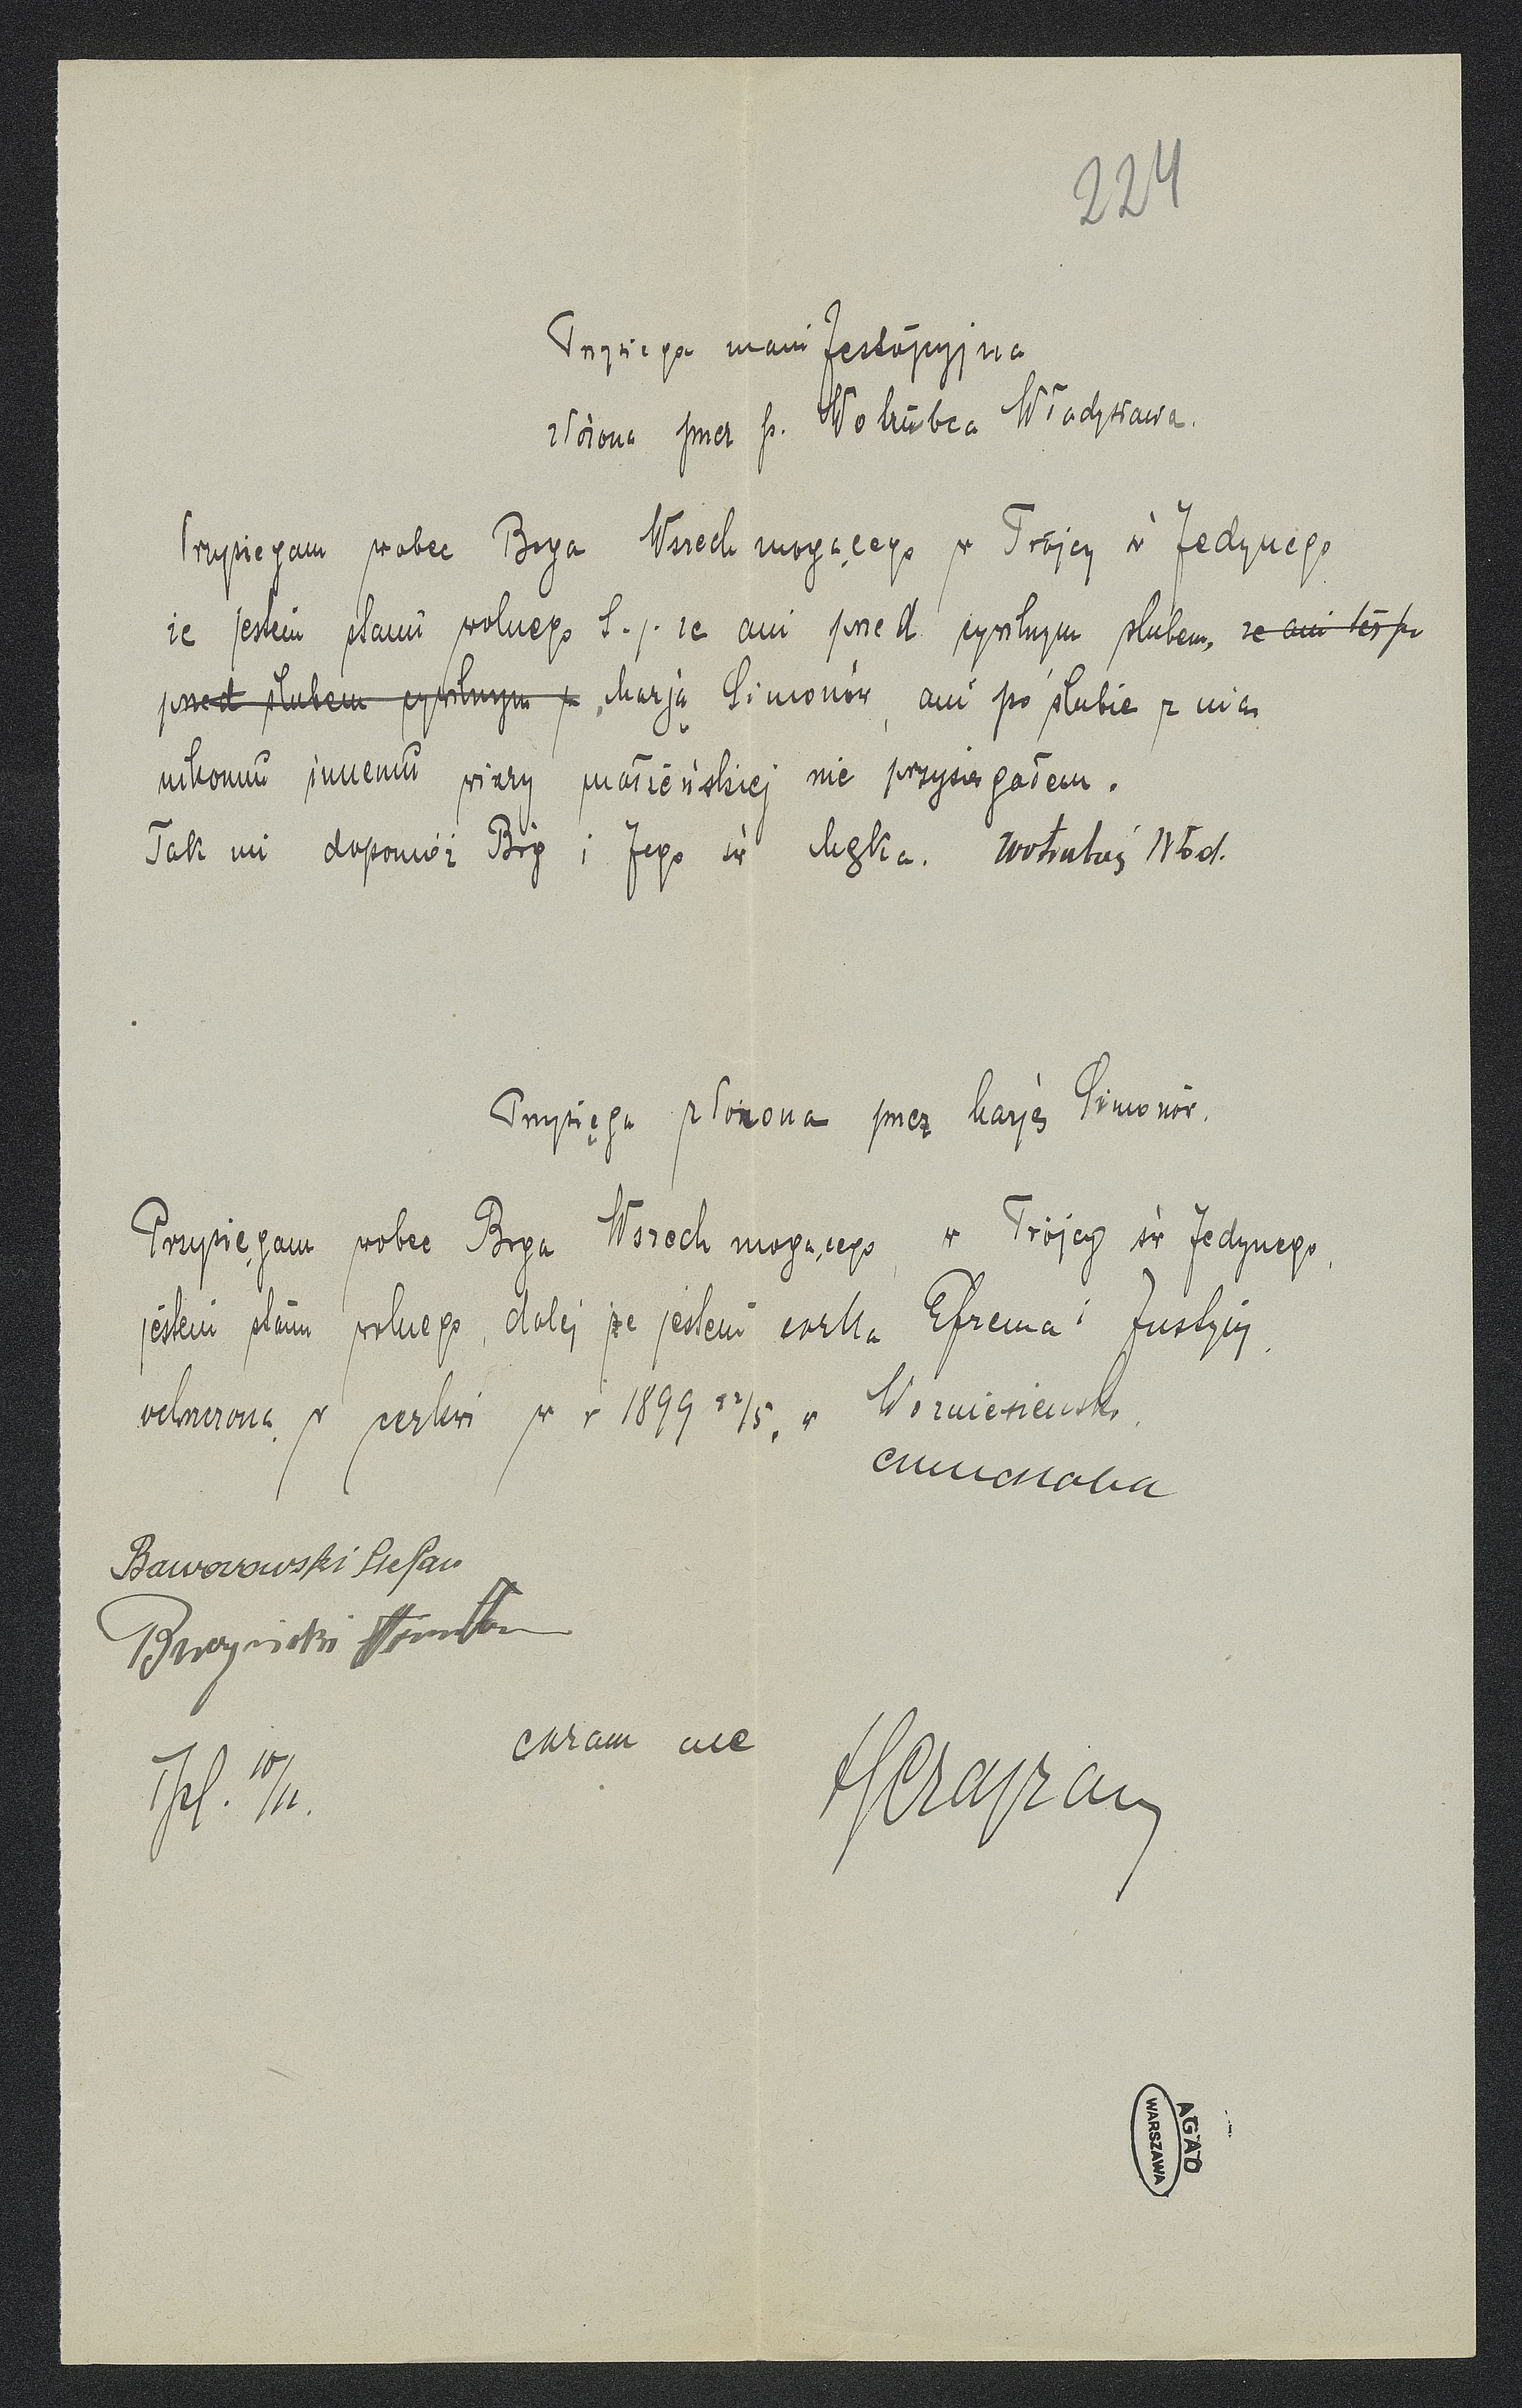 224
Przysięga manifestacyjna
złożona przez p. Wołubca Władysława.
Przysięgam wobec Boga Wszechmogącego w Trójcy św Jedynego
że jestem stanu wolnego t. j. że ani przed cywilnym ślubem, że ani też po
przed ślubem cywilnym z Marją Simonów, ani po ślubie z nią
nikomu innemu wiary małżeńskiej nie przysięgałem.
Tak mi dopomóż Bóg i Jego św Męka. Włod.
Przysięga złożona przez Marję Simonów.
Przysięgam wobec Boga Wszechmogącego, w Trójcy św Jedynego,
jestem stanu wolnego, dalej że jestem córka Efrema i Justyny,
ochrzczona w cerkwi w r 1899 w Wozniesiensku.
Симонова
Baworowski Stefan
Tpl. 10/11.
coram me
AGAD
WARSZAWA